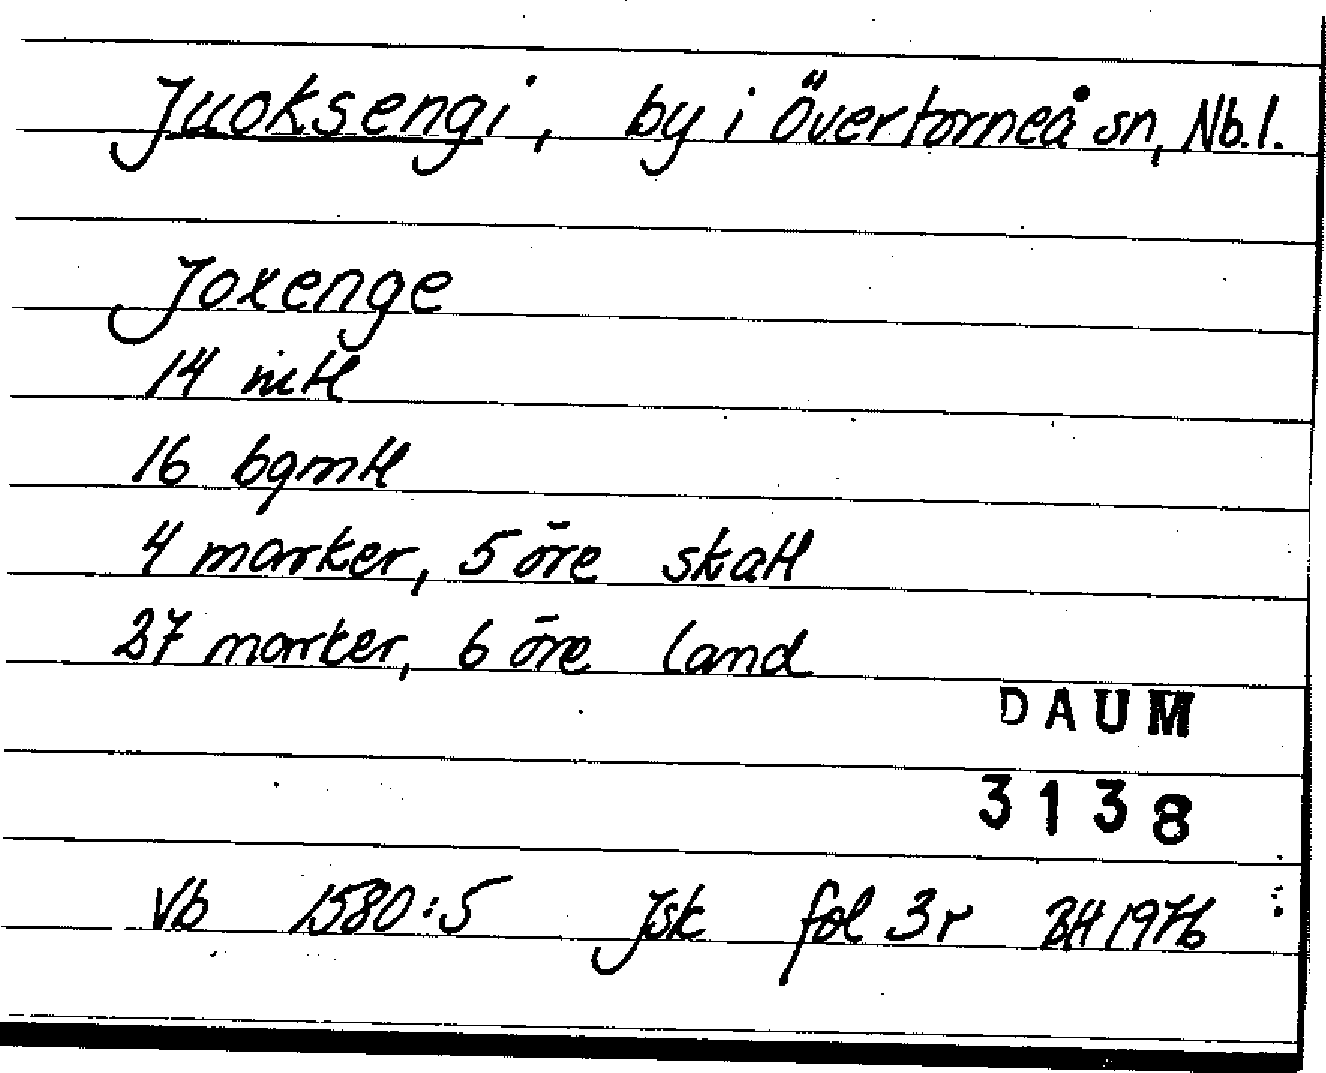 Juoksengi, by i Övertorneå sn, Nb.l.
Joxenge
14 mtl
16 bgmtl
4 marker, 5 öre skatt
27 marker, 6 öre land
DAUM
3138
Vb 1580:5 Jsk fol 3r BH 1976